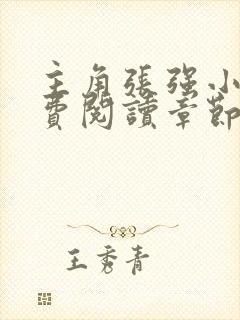 主角張强小
費閱讀章節
王秀青